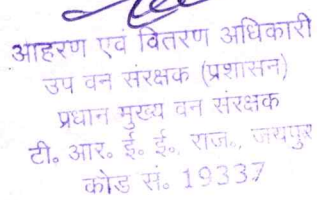 आहरण एवं वितरण अधिकारी
उप वन संरक्षक (प्रशासन)
प्रधान मुख्य वन संरक्षक
टी॰ आर॰ ई॰ ई॰, राज॰, जयपुर
कोड सं॰ 19337